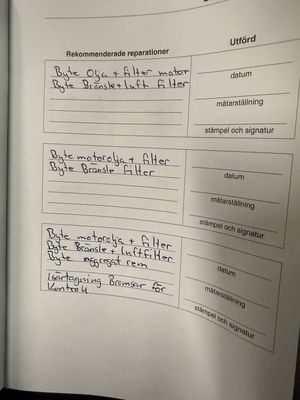 Rekommenderade reparationer
Utförd
Byte Olja + filter motor
Byte Bränsle + luft filter
datum
mätarställning
stämpel och signatur
Byte motorolja + filter
Byte Bränsle filter
datum
mätarställning
stämpel och signatur
Byte motorolja + filter
Byte Bränsle + luftfilter
Byte aggregat rem
Isärtagning Bromsar för
Kontroll
datum
mätarställning
stämpel och signatur